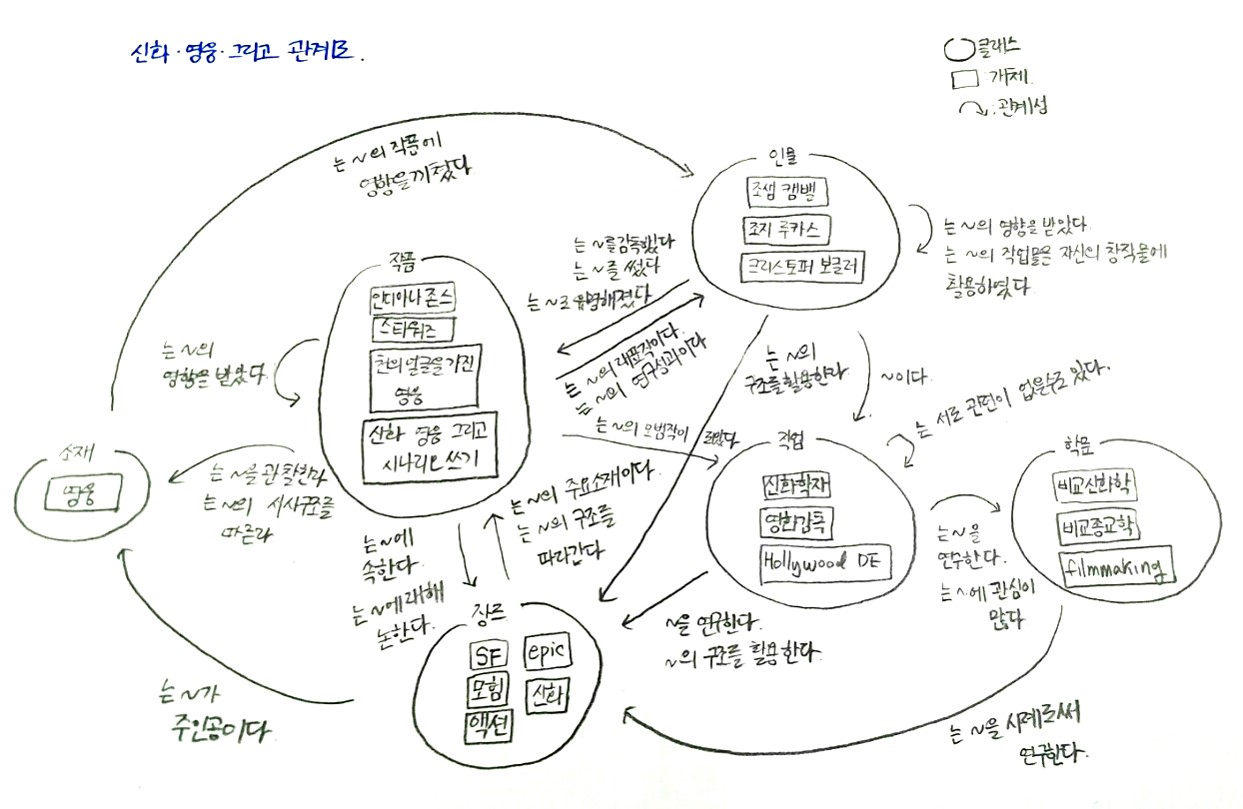 신화·영웅·그리고 관계도.
클래스
개체
관계성
는 ~의 작품에
영향을 끼쳤다
인물
조셉 캠벨
조지 루카스
크리스토퍼 보글러
는 ~의 영향을 받았다.
는 ~의 작업물은 자신의 창작물에
활용하였다.
는 ~를 감독했다
는 ~를 썼다
는 ~로 유명해졌다.
작품
인디아나 존스
스타워즈
천의 얼굴을 가진
영웅
신화 영웅 그리고
시나리오 쓰기
는 ~의
영향을 받았다.
는 ~의 대표작이다.
는 ~의 연구성과이다
는 ~의
구조를 활용한다
~이다.
는 서로 관련이 없을수도 있다.
는 ~의 모범작이 되었다.
소재
영웅
는 ~을 관찰한다
는 ~의 서사구조를
따른다
직업
신화학자
영화감독
Hollywood DE
학문
비교신화학
비교종교학
filmmaking
는 ~을
연구한다.
는 ~에 관심이
많다
는 ~에
속한다.
는 ~에 대해
논한다.
는 ~의 주요소재이다.
는 ~의 구조를
따라간다
장르
SF
epic
모험
신화
액션
~을 연구한다.
~의 구조를 활용한다.
는 ~가
주인공이다.
는 ~을 사례로써
연구한다.